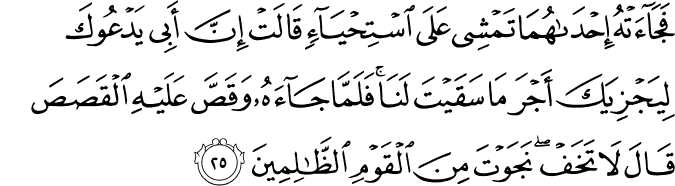 فَجَآءَتْهُ إِحْدَىٰهُمَا تَمْشِى عَلَى ٱسْتِحْيَآءٍ قَالَتْ إِنَّ أَبِى يَدْعُوكَ
لِيَجْزِيَكَ أَجْرَ مَا سَقَيْتَ لَنَا ۚ فَلَمَّا جَآءَهُۥ وَقَصَّ عَلَيْهِ ٱلْقَصَصَ
قَالَ لَا تَخَفْ ۖ نَجَوْتَ مِنَ ٱلْقَوْمِ ٱلظَّـٰلِمِينَ ٢٥